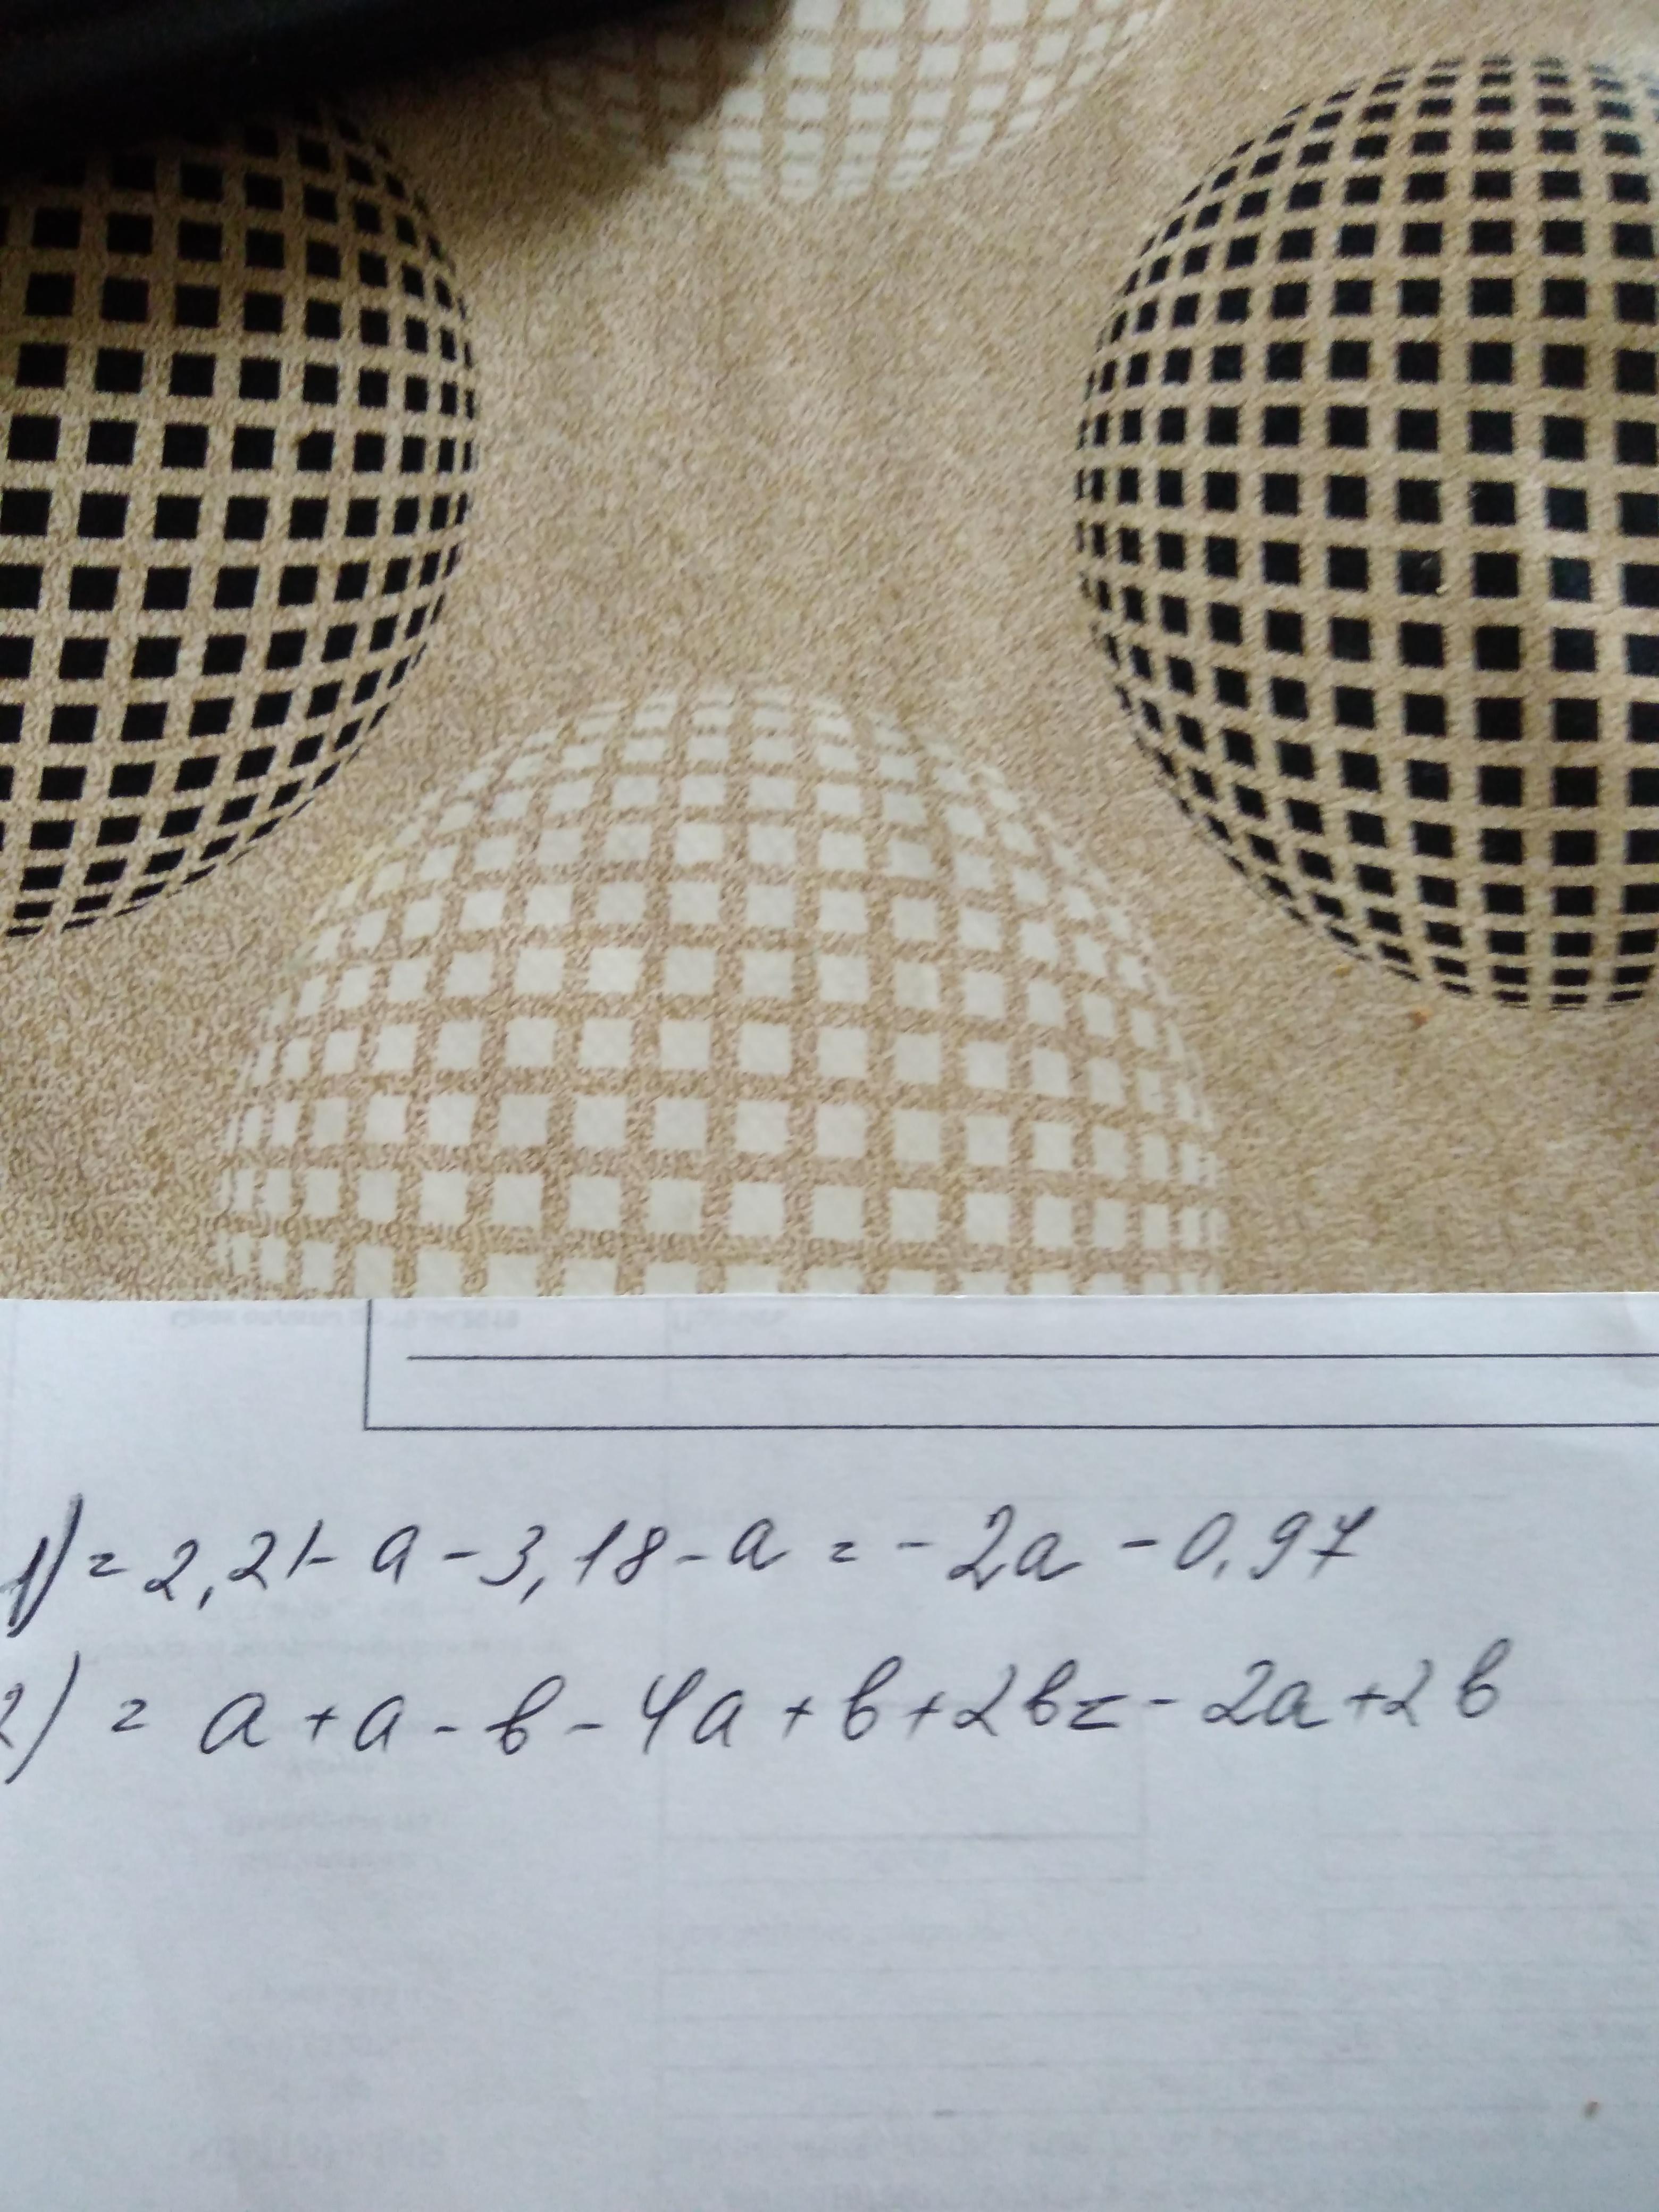 1) = 2,21 - a - 3,18 - a = - 2a - 0,97
2) = a + a - b - 4a + b + 2b = - 2a + 2b